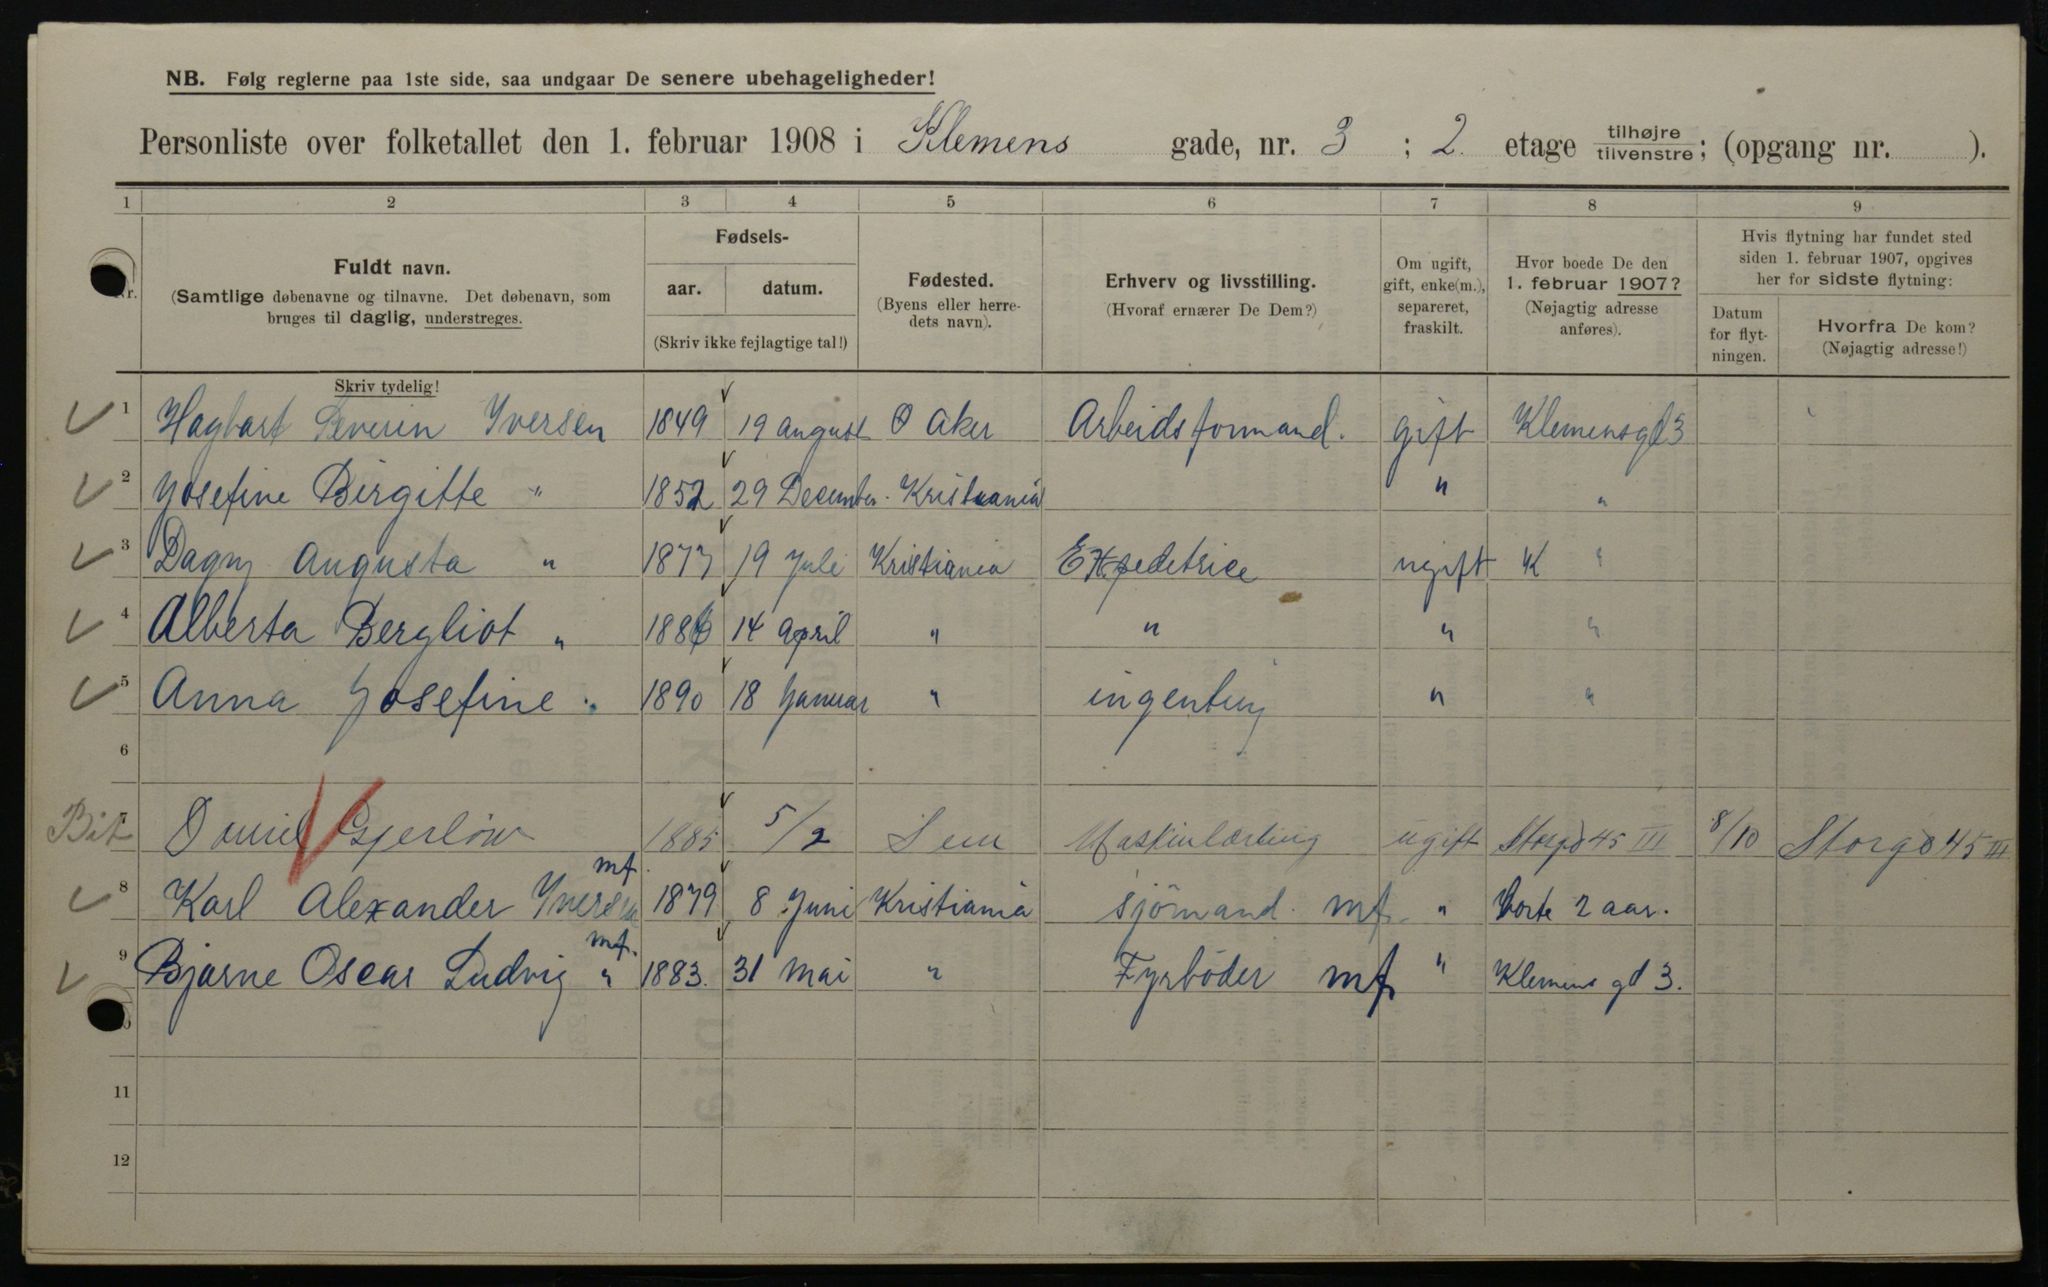 NB. Følg reglerne paa 1ste side, saa undgaar De senere ubehageligheder!
Personliste over folketallet den 1. februar 1908 i Klemens gade, nr. 3 ; 2 etage tilhøjre tilvenstre; (opgang nr. ).
1 2 3 4 5 6 7 8 9
Nr.
Fuldt navn.
(Samtlige døbenavne og tilnavne. Det døbenavn, som
bruges til daglig, understreges.
Skriv tydelig!
Fødsels-
aar. datum.
(Skriv ikke fejlagtige tal!)
Fødested.
(Byens eller herre-
dets navn).
Erhverv og livsstilling.
(Hvoraf ernærer De Dem?)
Om ugift,
gift, enke(m.),
separeret,
fraskilt.
Hvor boede De den
1. februar 1907?
(Nøjagtig adresse
anføres).
Hvis flytning har fundet sted
siden 1. februar 1907, opgives
her for sidste flytning:
Datum
for flyt-
ningen.
Hvorfra De kom?
(Nøjagtig adresse!)
1 Hagbart Severin Yversen 1849 19 august Ø Aker Arbeidsformand. gift Klemensgd 3
2 Josefine Birgitte " 1852 29 December. Kristiania " "
3 Dagny Augusta " 1877 19 Juli Kristiania Expeditrice ugift K "
4 Alberta Bergliot " 1886 14 April " " " "
5 Anna Josefine " 1890 18 Januar " ingenting " "
6
Bit 7 Daniel Gjerløw 1885 5/2 Sem Maskinlærling ugift Storgd 45 III 8/10 Storgd 45 III
8 Karl Alexander Yversen mf. 1879 8 Juni Kristiania sjömand. mf. " Borte 2 aar.
9 Bjarne Oscar Ludvig " mf. 1883. 31 Mai " Fyrböder mf. " Klemens gd 3.
11
12